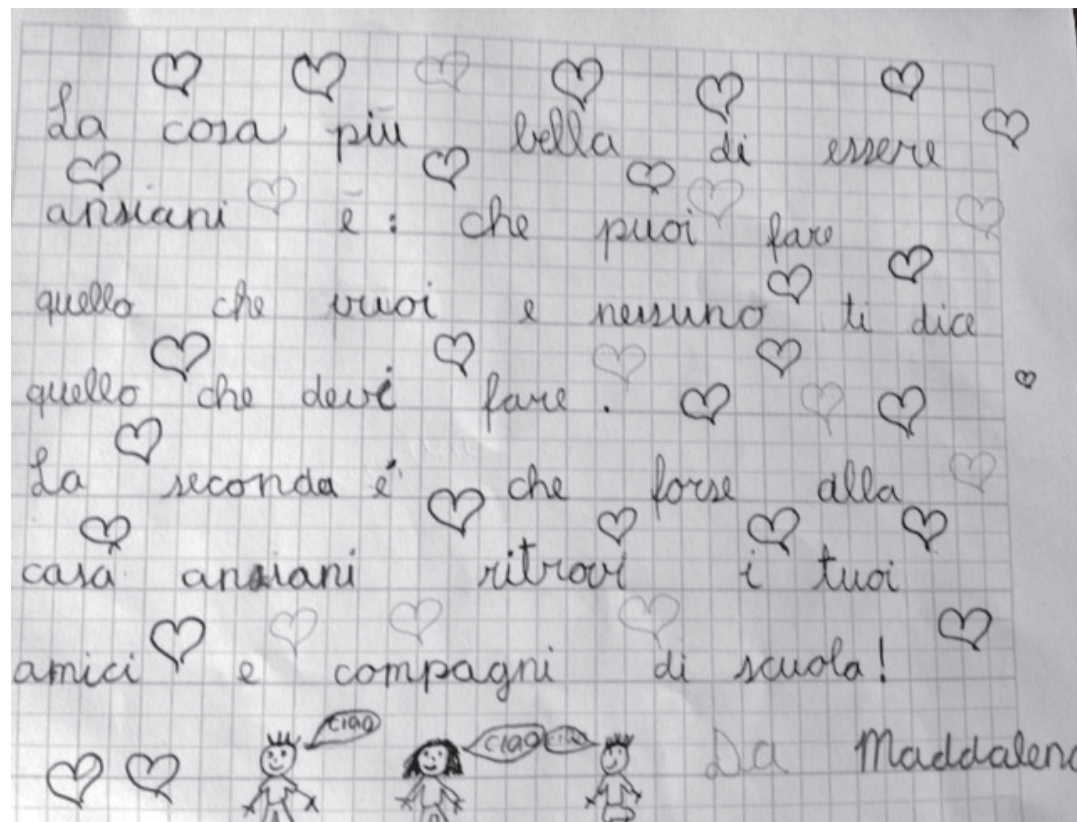 La cosa più bella di essere
ansiani è: che puoi fare
quello che vuoi e nessuno ti dice
quello che devi fare.
La seconda è che forse alla
casa ansiani ritrovi i tuoi
amici e compagni di scuola!
ciao ciao ciao
Da Maddalena